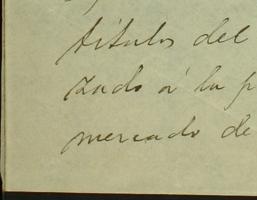 títulos del
zado á la p
mercado de